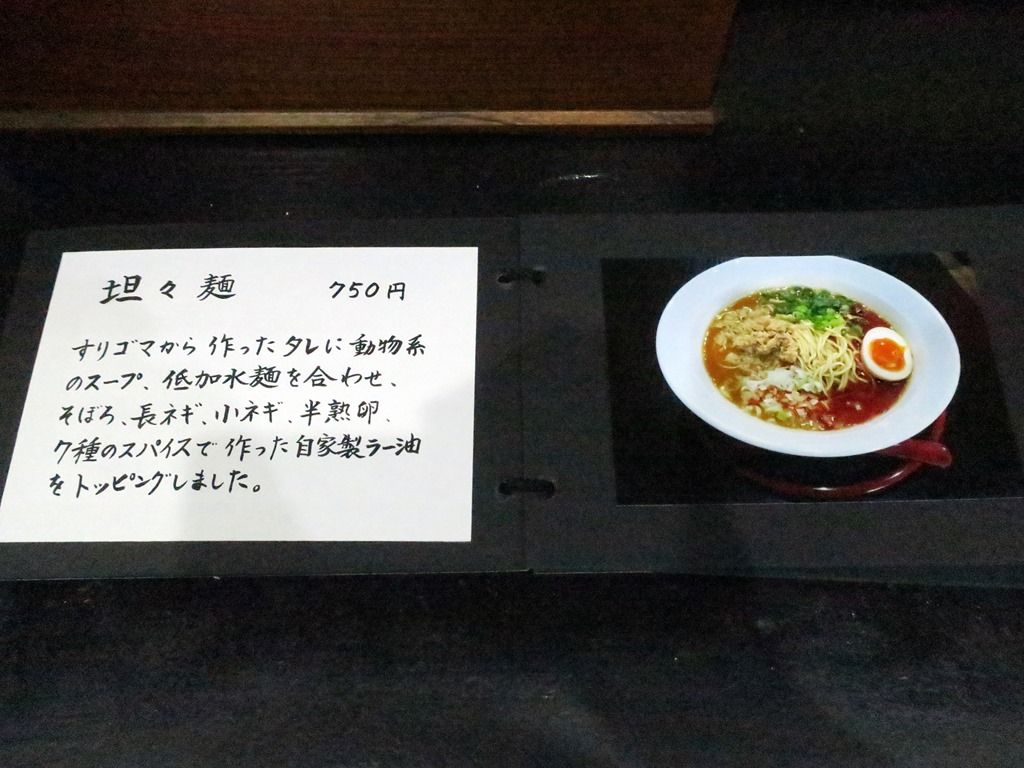 坦々麺 750円
すりゴマから作ったタレに動物系
のスープ、低加水麺を合わせ、
そぼろ、長ネギ、小ネギ、半熟卵、
7種のスパイスで作った自家製ラー油
をトッピングしました。